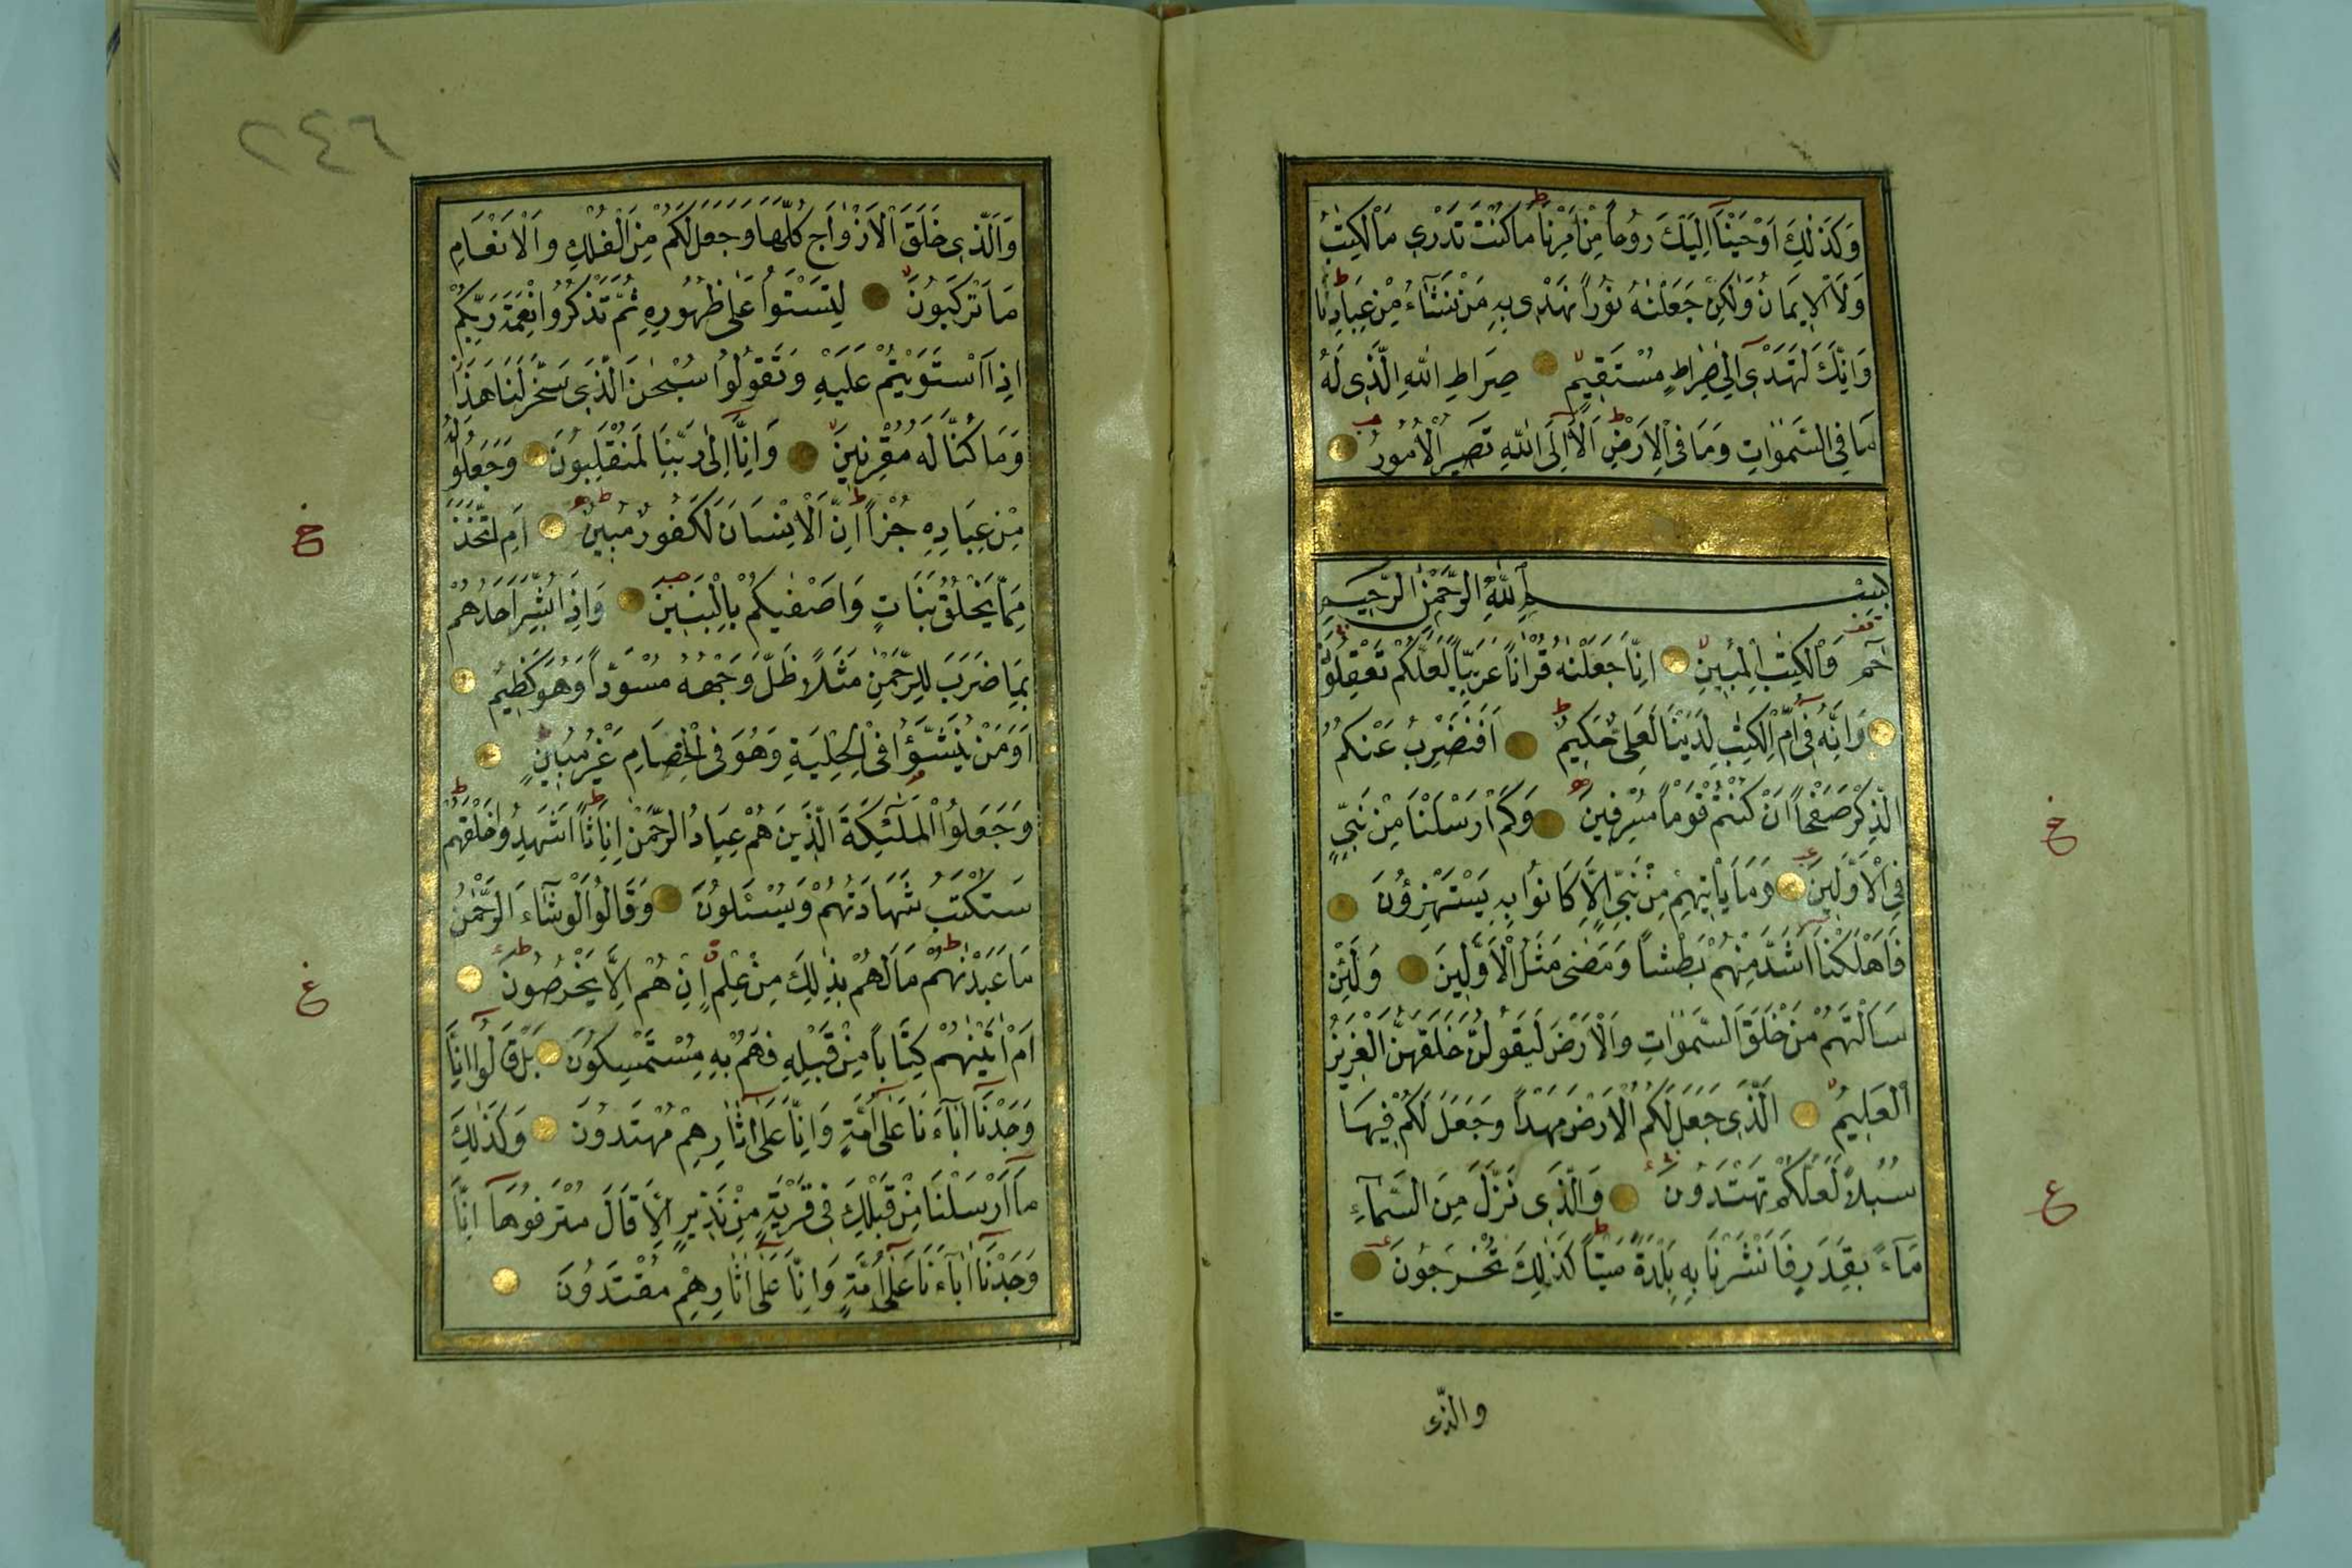 وَكَذٰلِكَ اَوْحَيْنَآ اِلَيْكَ رُوحاً مِنْ اَمْرِنَا مَا كُنْتَ تَدْرِى مَا الْكِتٰبُ
وَلَا الْاِيمَانُ وَلٰكِنْ جَعَلْنٰهُ نُوراً نَهْدِى بِهِ مَنْ نَشَآءُ مِنْ عِبَادِنَا
وَاِنَّكَ لَتَهْدِىٓ اِلٰى صِرَاطٍ مُسْتَقِيمٍ صِرَاطِ اللّٰهِ الَّذِى لَهُ
مَا فِى السَّمٰوَاتِ وَمَا فِى الْاَرْضِ اَلَآ اِلَى اللّٰهِ تَصِيرُ الْاُمُورُ
بِسْمِ اللّٰهِ الرَّحْمٰنِ الرَّحِيمِ
حٰمٓ وَالْكِتٰبِ الْمُبِينِ اِنَّا جَعَلْنٰهُ قُرْاٰناً عَرَبِيّاً لَعَلَّكُمْ تَعْقِلُونَ
وَاِنَّهُ فِىٓ اُمِّ الْكِتٰبِ لَدَيْنَا لَعَلِىٌّ حَكِيمٌ اَفَنَضْرِبُ عَنْكُمُ
الذِّكْرَ صَفْحاً اَنْ كُنْتُمْ قَوْماً مُسْرِفِينَ وَكَمْ اَرْسَلْنَا مِنْ نَبِىٍّ
فِى الْاَوَّلِينَ وَمَا يَاْتِيهِمْ مِنْ نَبِىٍّ اِلَّا كَانُوا بِهِ يَسْتَهْزِؤُنَ
فَاَهْلَكْنَآ اَشَدَّ مِنْهُمْ بَطْشاً وَمَضٰى مَثَلُ الْاَوَّلِينَ وَلَئِنْ
سَاَلْتَهُمْ مَنْ خَلَقَ السَّمٰوَاتِ وَالْاَرْضَ لَيَقُولُنَّ خَلَقَهُنَّ الْعَزِيزُ
الْعَلِيمُ الَّذِى جَعَلَ لَكُمُ الْاَرْضَ مَهْداً وَجَعَلَ لَكُمْ فِيهَا
سُبُلاً لَعَلَّكُمْ تَهْتَدُونَ وَالَّذِى نَزَّلَ مِنَ السَّمَآءِ
مَآءً بِقَدَرٍ فَاَنْشَرْنَا بِهِ بَلْدَةً مَيْتاً كَذٰلِكَ تُخْرَجُونَ
والذى
خ
ع
٢٤٦
وَالَّذِى خَلَقَ الْاَزْوَاجَ كُلَّهَا وَجَعَلَ لَكُمْ مِنَ الْفُلْكِ وَالْاَنْعَامِ
مَا تَرْكَبُونَ لِتَسْتَوُا عَلٰى ظُهُورِهِ ثُمَّ تَذْكُرُوا نِعْمَةَ رَبِّكُمْ
اِذَا اسْتَوَيْتُمْ عَلَيْهِ وَتَقُولُوا سُبْحٰنَ الَّذِى سَخَّرَ لَنَا هٰذَا
وَمَا كُنَّا لَهُ مُقْرِنِينَ وَاِنَّآ اِلٰى رَبِّنَا لَمُنْقَلِبُونَ وَجَعَلُوا لَهُ
مِنْ عِبَادِهِ جُزْءاً اِنَّ الْاِنْسَانَ لَكَفُورٌ مُبِينٌ اَمِ اتَّخَذَ
مِمَّا يَخْلُقُ بَنَاتٍ وَاَصْفٰيكُمْ بِالْبَنِينَ وَاِذَا بُشِّرَ اَحَدُهُمْ
بِمَا ضَرَبَ لِلرَّحْمٰنِ مَثَلاً ظَلَّ وَجْهُهُ مُسْوَدّاً وَهُوَ كَظِيمٌ
اَوَمَنْ يُنَشَّؤُا فِى الْحِلْيَةِ وَهُوَ فِى الْخِصَامِ غَيْرُ مُبِينٍ
وَجَعَلُوا الْمَلٰٓئِكَةَ الَّذِينَ هُمْ عِبَادُ الرَّحْمٰنِ اِنَاثاً اَشَهِدُوا خَلْقَهُمْ
سَتُكْتَبُ شَهَادَتُهُمْ وَيُسْئَلُونَ وَقَالُوا لَوْ شَآءَ الرَّحْمٰنُ
مَا عَبَدْنٰهُمْ مَا لَهُمْ بِذٰلِكَ مِنْ عِلْمٍ اِنْ هُمْ اِلَّا يَخْرُصُونَ
اَمْ اٰتَيْنٰهُمْ كِتَاباً مِنْ قَبْلِهِ فَهُمْ بِهِ مُسْتَمْسِكُونَ بَلْ قَالُوٓا اِنَّا
وَجَدْنَآ اٰبَآءَنَا عَلٰىٓ اُمَّةٍ وَاِنَّا عَلٰىٓ اٰثَارِهِمْ مُهْتَدُونَ وَكَذٰلِكَ
مَآ اَرْسَلْنَا مِنْ قَبْلِكَ فِى قَرْيَةٍ مِنْ نَذِيرٍ اِلَّا قَالَ مُتْرَفُوهَآ اِنَّا
وَجَدْنَآ اٰبَآءَنَا عَلٰىٓ اُمَّةٍ وَاِنَّا عَلٰىٓ اٰثَارِهِمْ مُقْتَدُونَ